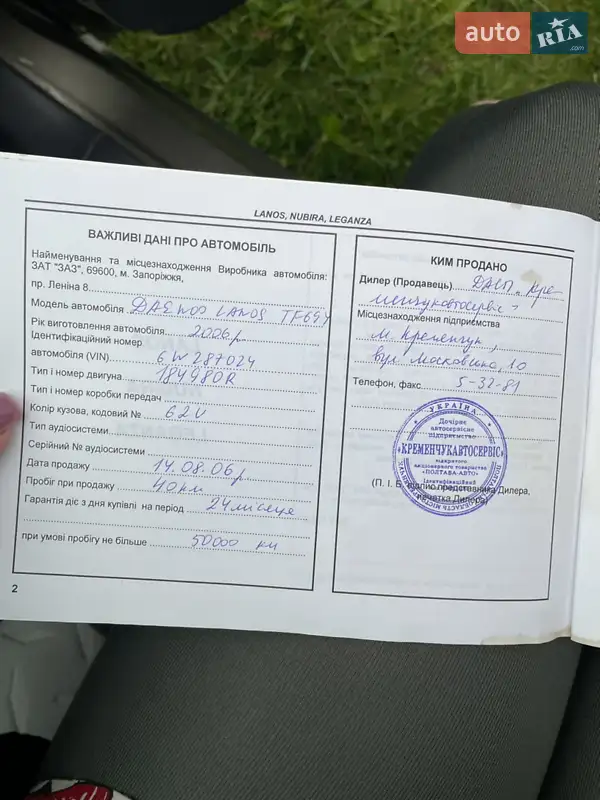 auto RIA .com
LANOS, NUBIRA, LEGANZA
ВАЖЛИВІ ДАНІ ПРО АВТОМОБІЛЬ
Найменування та місцезнаходження Виробника автомобіля:
ЗАТ "ЗАЗ", 69600, м. Запоріжжя,
пр. Леніна 8
Модель автомобіля DAEWOO LANOS TF69Y
Рік виготовлення автомобіля 2006р
Ідентифікаційний номер
автомобіля (VIN) 6W287024
Тип і номер двигуна 184980R
Тип і номер коробки передач
Колір кузова, кодовий № 62U
Тип аудіосистеми
Серійний № аудіосистеми
Дата продажу 14.08.06р
Пробіг при продажу 40 км
Гарантія діє з дня купівлі на період 24 місяця
при умові пробігу не більше 50000 км
2
КИМ ПРОДАНО
Дилер (Продавець) ДАСП „Кре-
менчукавтосервіс"
Місцезнаходження підприємства
м. Кременчук,
вул. Московська, 10
Телефон, факс 5-32-81
УКРАЇНА
Дочірнє
автосервісне
підприємство
«КРЕМЕНЧУКАВТОСЕРВІС»
відкритого
акціонерного товариства
«ПОЛТАВА-АВТО»
Ідентифікаційний
(П. І. Б. підпис представника Дилера,
печатка Дилера)